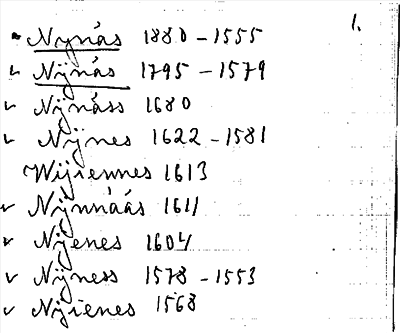 1.
Nynäs 1880-1555
Nÿnäs 1795-1579
Nÿnäss 1680
Nÿnes 1622-1581
Wijiennes 1613
Nÿnnäås 1611
Nÿenes 1604
Nÿness 1578-1553
Nÿienes 1568